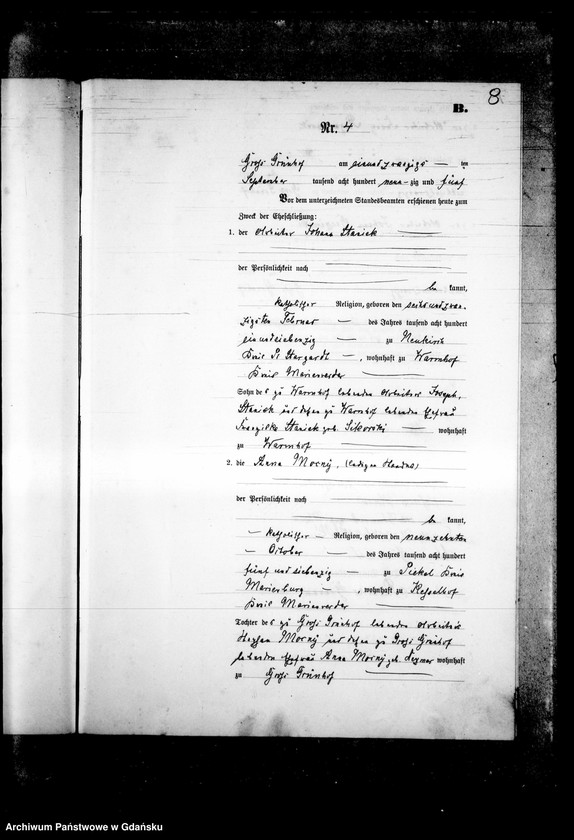 8
B.
Nr. 4
Groß Grünhof am einundzwanzigs ten
September tausend acht hundert neun-zig und fünf
Vor dem unterzeichneten Standesbeamten erschienen heute zum
Zweck der Eheschließung:
1. der Arbeiter Johann Staniek
der Persönlichkeit nach
be kannt,
katholischer Religion, geboren den sechsundzwan-
zigsten Februar des Jahres tausend acht hundert
einundsiebenzig zu Neukirch
Kreis Pr Stargardt, wohnhaft zu Warmhof
Kreis Marienwerder
Sohn des zu Warmhof lebenden Arbeiters Joseph
Staniek und dessen zu Warmhof lebenden Ehefrau
Staniek geb. Sikorski wohnhaft
zu Warmhof
2. die Anna Morny, (ledigen Standes)
der Persönlichkeit nach
be kannt,
katholischer Religion, geboren den neunzehnten
October des Jahres tausend acht hundert
fünfundsiebenzig zu Piekel Kreis
Marienburg, wohnhaft zu Kesselhof
Kreis Marienwerder
Tochter des zu Groß Grünhof lebenden Arbeiters
Stephan Morny und dessen zu Groß Grünhof
lebenden Ehefrau Anna Morny geb. wohnhaft
zu Groß Grünhof
Archiwum Państwowe w Gdańsku